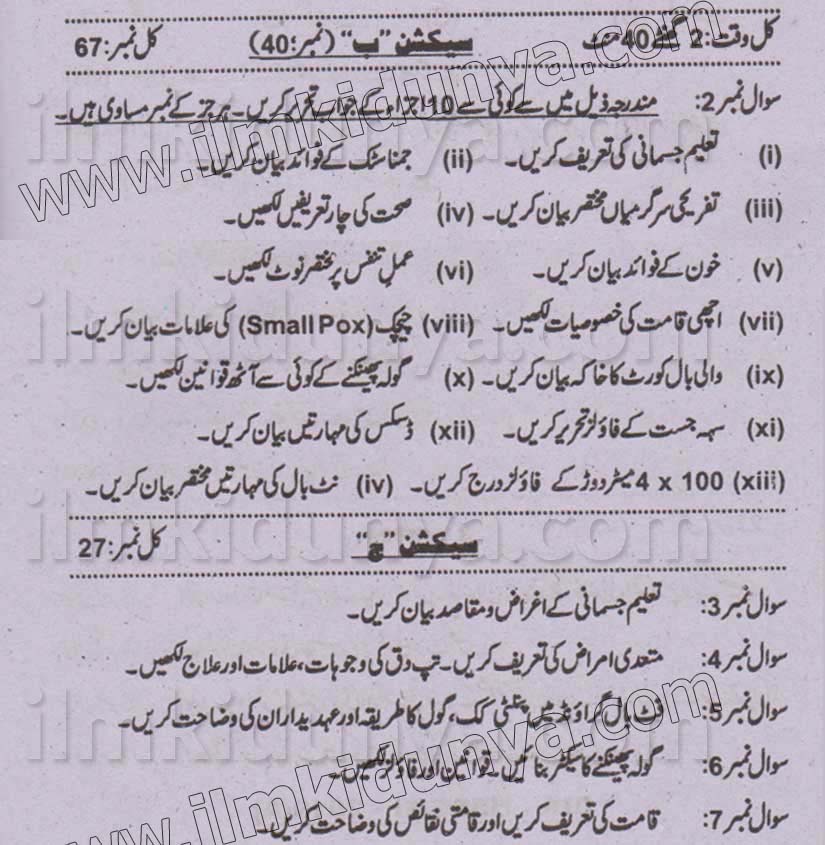 کل وقت: 2 گھنٹے 40 منٹ سیکشن "ب" (نمبر: 40) کل نمبر: 67
سوال نمبر 2: مندرجہ ذیل میں سے کوئی سے 10 اجزاء کے جوابات تحریر کریں۔ ہر جز کے نمبر مساوی ہیں۔
(i) تعلیم جسمانی کی تعریف کریں۔ (ii) جمناسٹک کے فوائد بیان کریں۔
(iii) تفریحی سرگرمیاں مختصر بیان کریں۔ (iv) صحت کی چار تعریفیں لکھیں۔
(v) خون کے فوائد بیان کریں۔ (vi) عمل تنفس پر مختصر نوٹ لکھیں۔
(vii) اچھی قامت کی خصوصیات لکھیں۔ (viii) چیچک (Small Pox) کی علامات بیان کریں۔
(ix) والی بال کورٹ کا خاکہ بیان کریں۔ (x) گولہ پھینکنے کے کوئی سے آٹھ قوانین لکھیں۔
(xi) سہہ جست کے فاؤلز تحریر کریں۔ (xii) ڈسکس کی مہارتیں بیان کریں۔
(xiii) 4 x 100 میٹر دوڑ کے فاؤلز درج کریں۔ (iv) نٹ بال کی مہارتیں مختصر بیان کریں۔
سیکشن "ج" کل نمبر: 27
سوال نمبر 3: تعلیم جسمانی کے اغراض و مقاصد بیان کریں۔
سوال نمبر 4: متعدی امراض کی تعریف کریں۔ تپ دق کی وجوہات، علامات اور علاج لکھیں۔
سوال نمبر 5: فٹ بال گراؤنڈ میں پنلٹی کک، گول کا طریقہ اور عہدیداران کی وضاحت کریں۔
سوال نمبر 6: گولہ پھینکنے کا سیکٹر بنائیں۔ قوانین اور فاؤلز لکھیں۔
سوال نمبر 7: قامت کی تعریف کریں اور قامتی نقائص کی وضاحت کریں۔
www.ilmkidunya.com
www.ilmkidunya.com
ilmkidunya.com
ilmkidunya.com
ilmkidunya.com
ilmkidunya.com